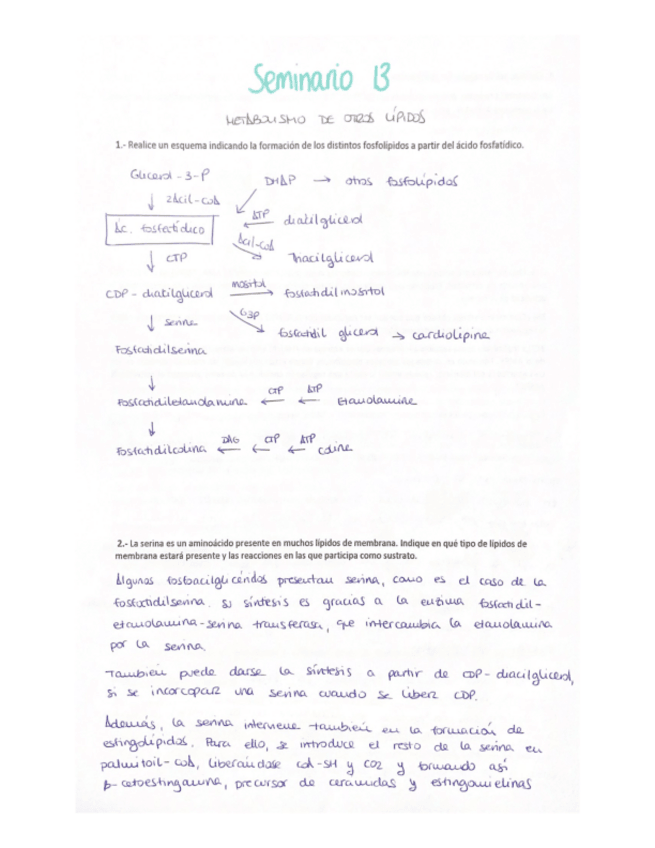 Seminario 13
METABOLISMO DE OTROS LÍPIDOS
1.- Realice un esquema indicando la formación de los distintos fosfolípidos a partir del ácido fosfatídico.
Glicerol-3-P
DHAP → otros fosfolípidos
↓ 2Acil-coA
Ác. fosfatídico
ATP
←
diacilglicerol
Acil-coA
Triacilglicerol
↓ CTP
CDP - diacilglicerol
inositol
→
fosfatidilinositol
↓ serina
G3P
fosfatidil glicerol → cardiolipina
Fosfatidilserina
↓
Fosfatidiletanolamina
CTP
←
ATP
←
Etanolamina
↓
Fosfatidilcolina
DAG
←
CTP
←
ATP
←
colina
2.- La serina es un aminoácido presente en muchos lípidos de membrana. Indique en qué tipo de lípidos de
membrana estará presente y las reacciones en las que participa como sustrato.
Algunos fosfoacilglicéridos presentan serina, como es el caso de la
fosfatidilserina. Su síntesis es gracias a la enzima fosfatidil-
etanolamina-serina transferasa, que intercambia la etanolamina
por la serina.
También puede darse la síntesis a partir de CDP-diacilglicerol,
si se incorpora una serina cuando se libera CDP.
Además, la serina interviene también en la formación de
esfingolípidos. Para ello, se introduce el resto de la serina en
palmitoil-coA, liberándose coA-SH y CO2 y formando así
β-cetoesfinganina, precursor de ceramidas y esfingomielinas